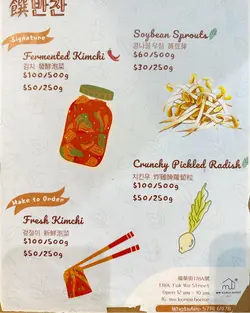 饌 반찬
Signature
Fermented Kimchi
김치 發酵泡菜
$100/500g
$50/250g
Soybean Sprouts
콩나물무침 黃豆芽
$60/500g
$30/250g
Crunchy Pickled Radish
치킨무 炸雞醃蘿蔔粒
$100/500g
$50/250g
Make to Order
Fresh Kimchi
겉절이 新鮮泡菜
$100/500g
$50/250g
福華街178A號
178A, Fuk Wa Street
Open 12 pm - 10 pm
WhatsApp